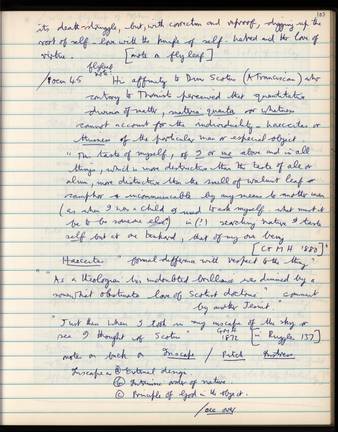 105
its death-struggle, but, with conviction and reproof, digging up the
root of self-love with the knife of self-hatred and the love of
virtue. [note a fly leaf]
flyleaf
note
/Poem 45 His affinity to Duns Scotus (A Franciscan) who
contrary to Thomist perceived that quantitative
division of matter, materia quanta or whatness
cannot account for the individuality - haecceitas or
thisness of the particular man or especial object.
"The taste of myself, of I or me above and in all
things, which is more distinctive than the taste of ale or
alum, more distinctive than the smell of walnut leaf or
camphor & incommunicable by any means to another man
(as when I was a child I used to ask myself what must it
be to be someone else) in (?) searching nature I taste
self but at one tankard, that of my own being
[GMH 1880]"
Haecceitas "formal difference with respect to the thing"
"As a theologian his undoubted brilliance was dimmed by a
somewhat obstinate love of Scotist doctrine" comment
by another Jesuit"
"Just then when I took in any inscape of the sky or
sea I thought of Scotus" GMH 1872 [= Ruggles 137]
note on back on Inscape / Pitch Instress
Inscape = (a) External design.
(b) Intrinsic order of nature
(c) Principle of God in the object.
/over